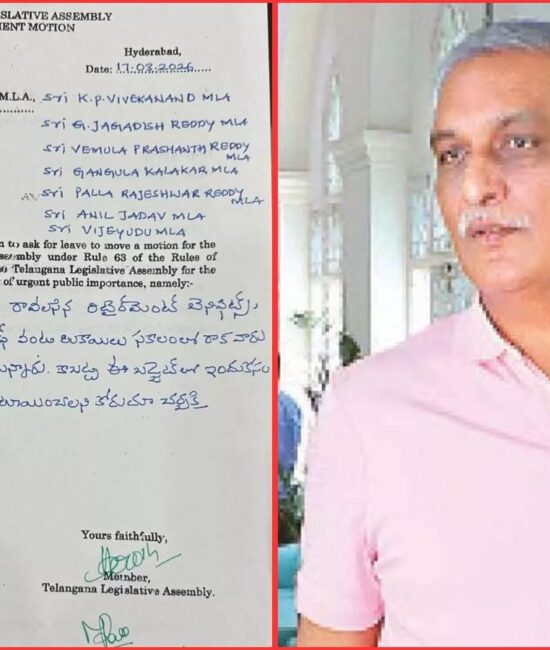 ISLATIVE ASSEMBLY
MENT MOTION
Hyderabad,
Date: 17.03.2026.....
M.L.A., Sri K.P. VIVEKANAND MLA
Sri G. JAGADISH REDDY MLA
Sri VEMULA PRASHANTH REDDY
MLA
Sri GANGULA KALAKAR MLA
Sri PALLA RAJESHWAR REDDY
MLA
Sri ANIL JADAV MLA
Sri VIJEYUDU MLA
n to ask for leave to move a motion for the
ssembly under Rule 63 of the Rules of
Telangana Legislative Assembly for the
of urgent public importance, namely:-
రావలసిన రిటైర్మెంట్ బెనిఫిట్స్,
బకాయిలు సకాలంలో రాక వారు
న్నారు. కాబట్టి ఈ బడ్జెట్ లో ఇందుకోసం
కోరుతూ చర్చకై
Yours faithfully,
Member,
Telangana Legislative Assembly.